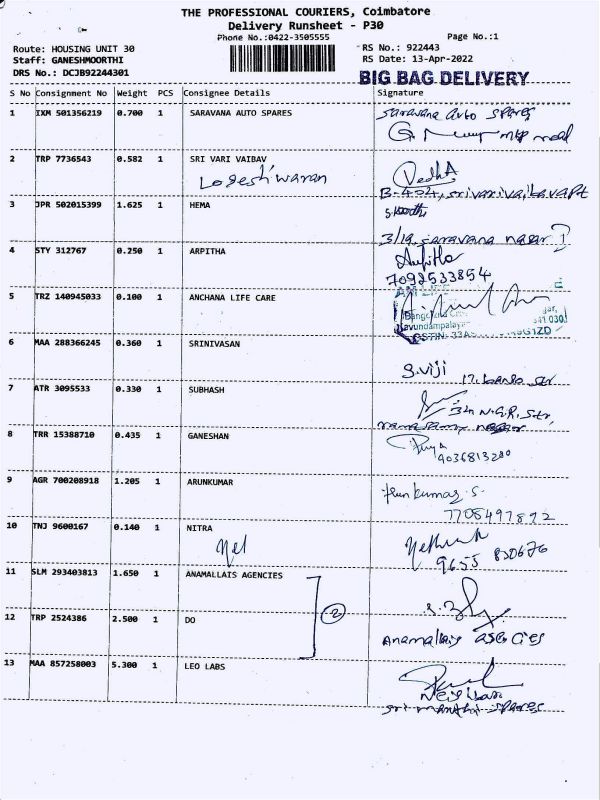 THE PROFESSIONAL COURIERS, Coimbatore
Delivery Runsheet - P30
Phone No.:0422-3505555 Page No.:1
Route: HOUSING UNIT 30 RS No.: 922443
Staff: GANESHMOORTHI RS Date: 13-Apr-2022
DRS No.: DCJB92244301
BIG BAG DELIVERY
S No Consignment No Weight PCS Consignee Details Signature
1 IXM 501356219 0.700 1 SARAVANA AUTO SPARES Saravana Auto Spares
2 TRP 7736543 0.582 1 SRI VARI VAIBAV VedhA
Logeshwaran B-404, srivarivaibavapt
3 JPR 502015399 1.625 1 HEMA
3/19, saravana nagar
4 STY 312767 0.250 1 ARPITHA Arpitha
7092533854
5 TRZ 140945033 0.100 1 ANCHANA LIFE CARE
6 MAA 288366245 0.360 1 SRINIVASAN
S.Viji
7 ATR 3095533 0.330 1 SUBHASH
34 N.G.R. Str,
8 TRR 15388710 0.435 1 GANESHAN Priya
9036813280
9 AGR 700208918 1.205 1 ARUNKUMAR
Arunkumar S.
7708497892
10 TNJ 9600167 0.140 1 NITRA
9655 830676
11 SLM 293403813 1.650 1 ANAMALLAIS AGENCIES
2
12 TRP 2524386 2.500 1 DO
Anamallais agencies
13 MAA 857258003 5.300 1 LEO LABS